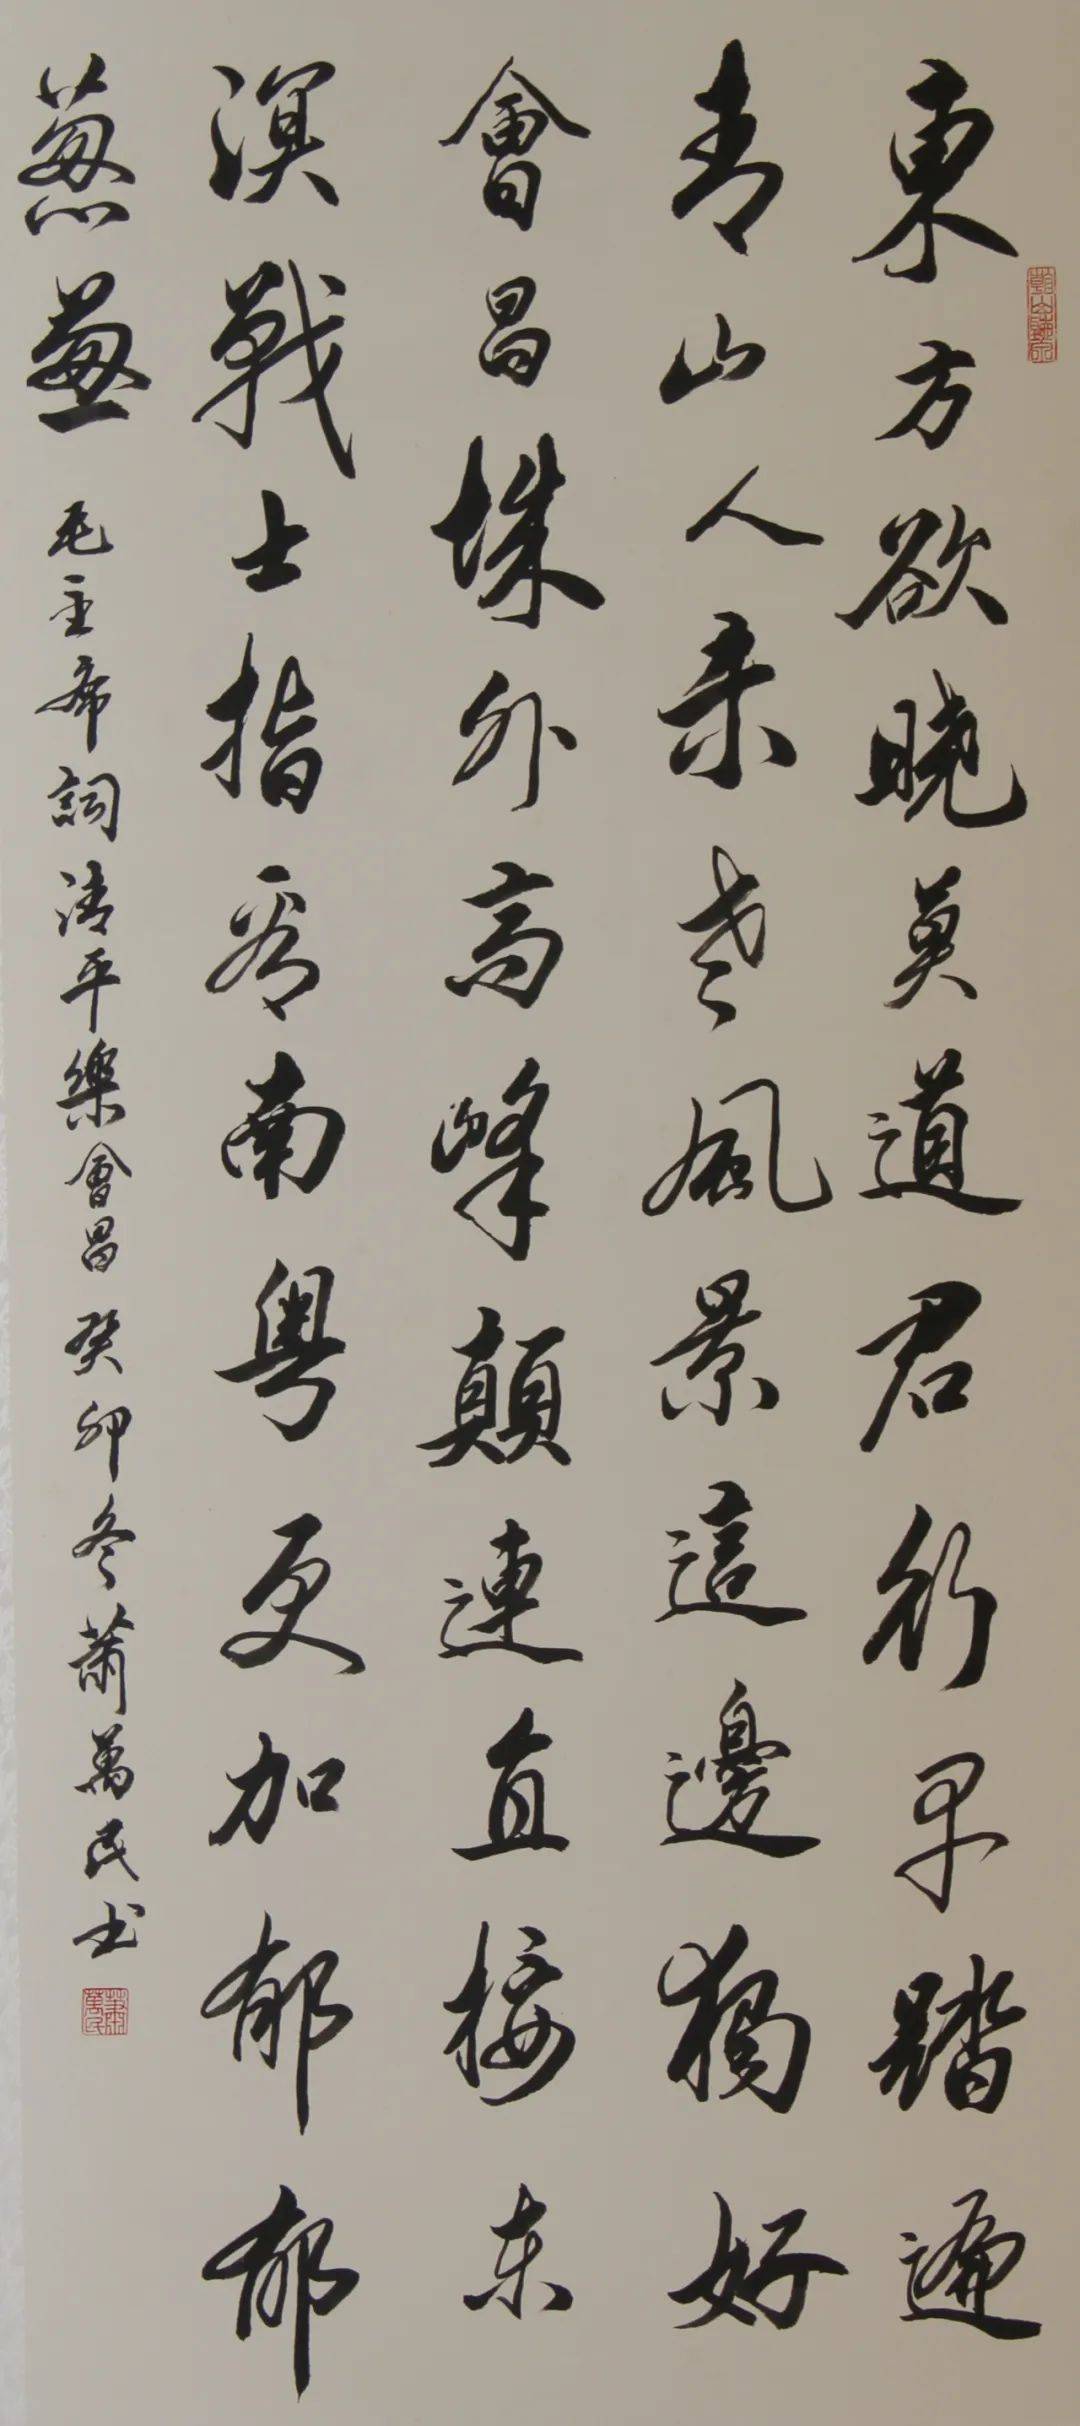 東方欲曉莫道君行早踏遍
青山人未老風景這邊獨好
會昌城外高峰顛連直接东
溟戰士指看南粵更加郁郁
葱葱
毛主席詞清平樂會昌 癸卯冬蕭萬民书
蕭萬民